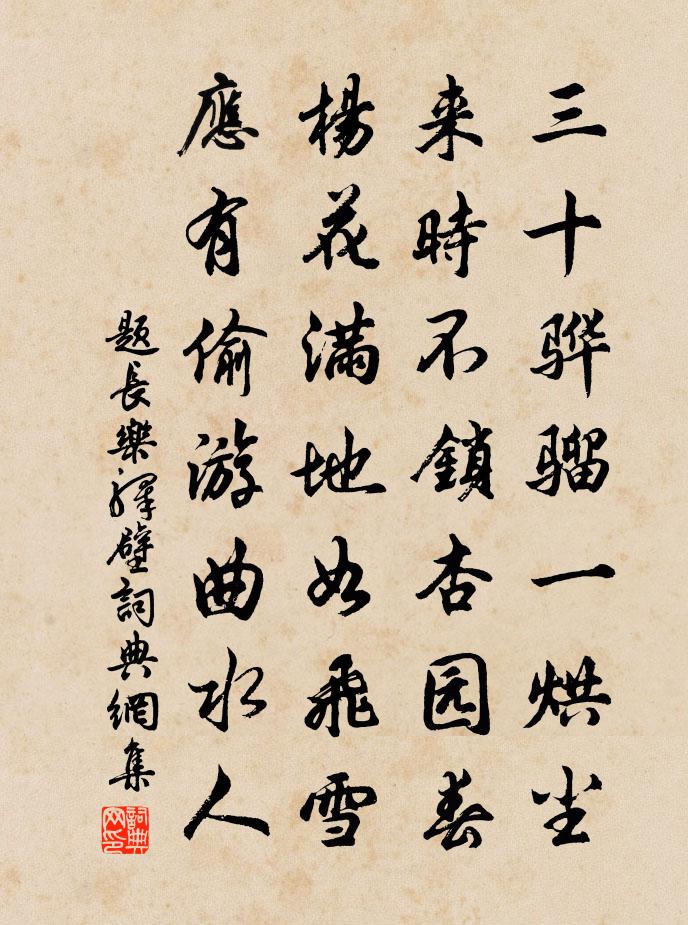 三十骅骝一烘尘
来時不鎖杏园春
楊花满地如飛雪
應有偷游曲水人
题長樂驛壁詞典網集
詞典网印